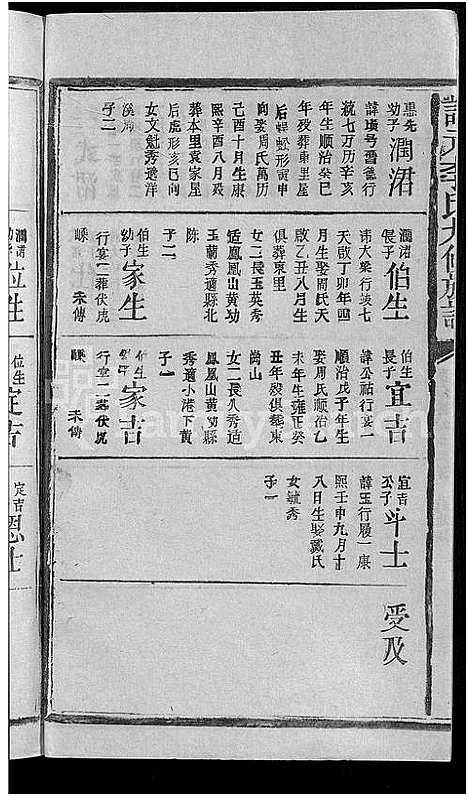 惠先
幼子 潤渚
諱璜号雪崖行
統七万历辛亥
年生順治癸巳
年殁葬東里屋
后蜈蚣形寅申
向娶周氏萬历
己酉十月生康
熙辛酉八月殁
葬本里袁家屋
后虎形亥巳向
女文魁秀適洋
溪
子二
潤渚
長子 伯生
諱大樂行茂七
天啟丁卯年四
月生娶周氏天
啟乙丑八月生
俱葬東里
女二長玉英秀
适鳳凰山黄功
玉蘭秀適縣北
陳
子二
伯生
幼子 家生
行宴二葬伏虎
嵊 未傳
伯生
長子 宜吉
諱公祐行宴一
順治戊子年生
娶周氏順治乙
未年生雍正癸
丑年殁俱葬東
崗山
女二長八秀适
鳳凰山黄功縣
秀適小港下黄
子一
家吉
行宣二葬伏虎
嵊 未傳
宜吉
公子 斗士
諱玉行履一康
熙壬申九月十
八日生娶戴氏
女毓秀
子一
受及
潤渚
幼子 位生
位生 定吉
定吉 恩士